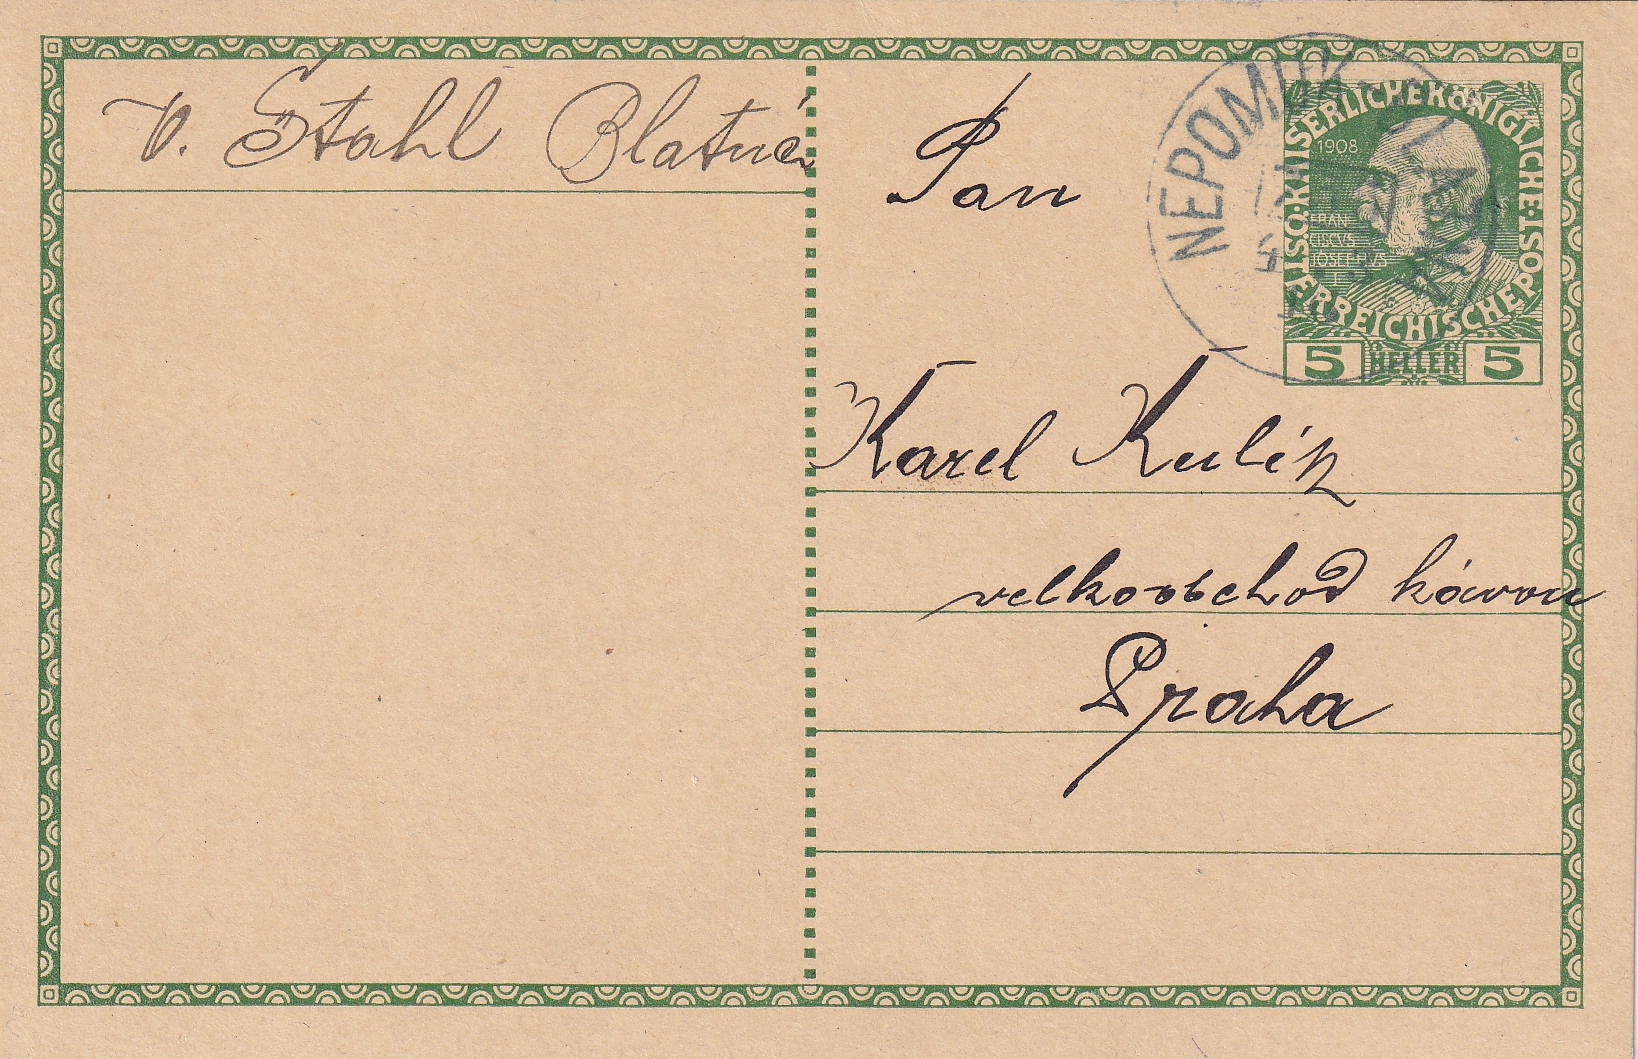 V. Stahl Blatná
Pan
Karel Kulík
velkoobchod kávou
Praha
NEPOMUK
K.K. ÖSTERREICHISCHE POST
KAISERLICHE KÖNIGLICHE
1908
FRAN
CISCVS
IOSEPHVS
I
5 HELLER 5